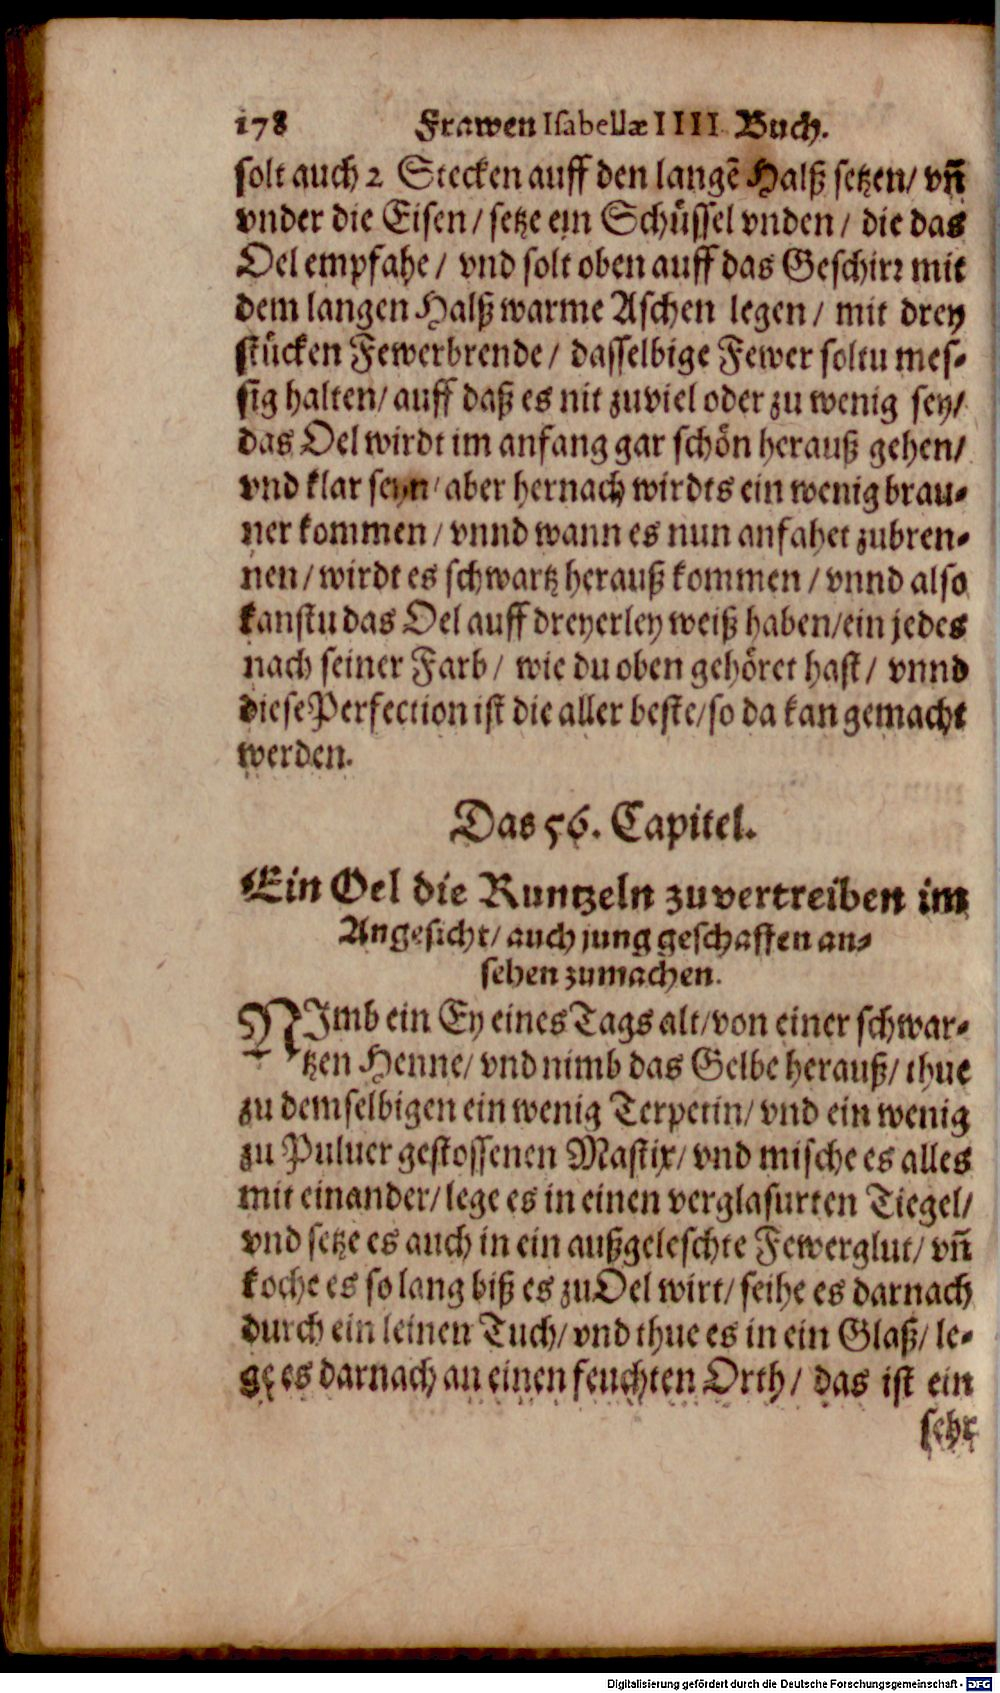 178 Frawen Isabellæ IIII Buch.
solt auch 2 Stecken auff den langẽ Halß setzen/ vñ
vnder die Eisen/ setze ein Schüssel vnden/ die das
Oel empfahe/ vnd solt oben auff das Geschirr mit
dem langen Halß warme Aschen legen/ mit drey
stücken Fewerbrende/ dasselbige Fewer soltu mes-
sig halten/ auff daß es nit zuviel oder zu wenig sey/
das Oel wirdt im anfang gar schön herauß gehen/
vnd klar seyn/ aber hernach wirdts ein wenig brau-
ner kommen/ vnnd wann es nun anfahet zubren-
nen/ wirdt es schwartz herauß kommen/ vnnd also
kanstu das Oel auff dreyerley weiß haben/ein jedes
nach seiner Farb/ wie du oben gehöret hast/ vnnd
diese Perfection ist die aller beste/so da kan gemacht
werden.
Das 56. Capitel.
Ein Oel die Runtzeln zuvertreiben im
Angesicht/ auch jung geschaffen an-
sehen zumachen.
NImb ein Ey eines Tags alt/von einer schwar-
tzen Henne/ vnd nimb das Gelbe herauß/ thue
zu demselbigen ein wenig Terpetin/ vnd ein wenig
zu Puluer gestossenen Mastix/ vnd mische es alles
mit einander/ lege es in einen verglasurten Tiegel/
vnd setze es auch in ein außgeleschte Fewerglut/ vñ
koche es so lang biß es zu Oel wirt/ seihe es darnach
durch ein leinen Tuch/ vnd thue es in ein Glaß/ le-
ge es darnach an einen feuchten Orth/ das ist ein
sehr
Digitalisierung gefördert durch die Deutsche Forschungsgemeinschaft - DFG